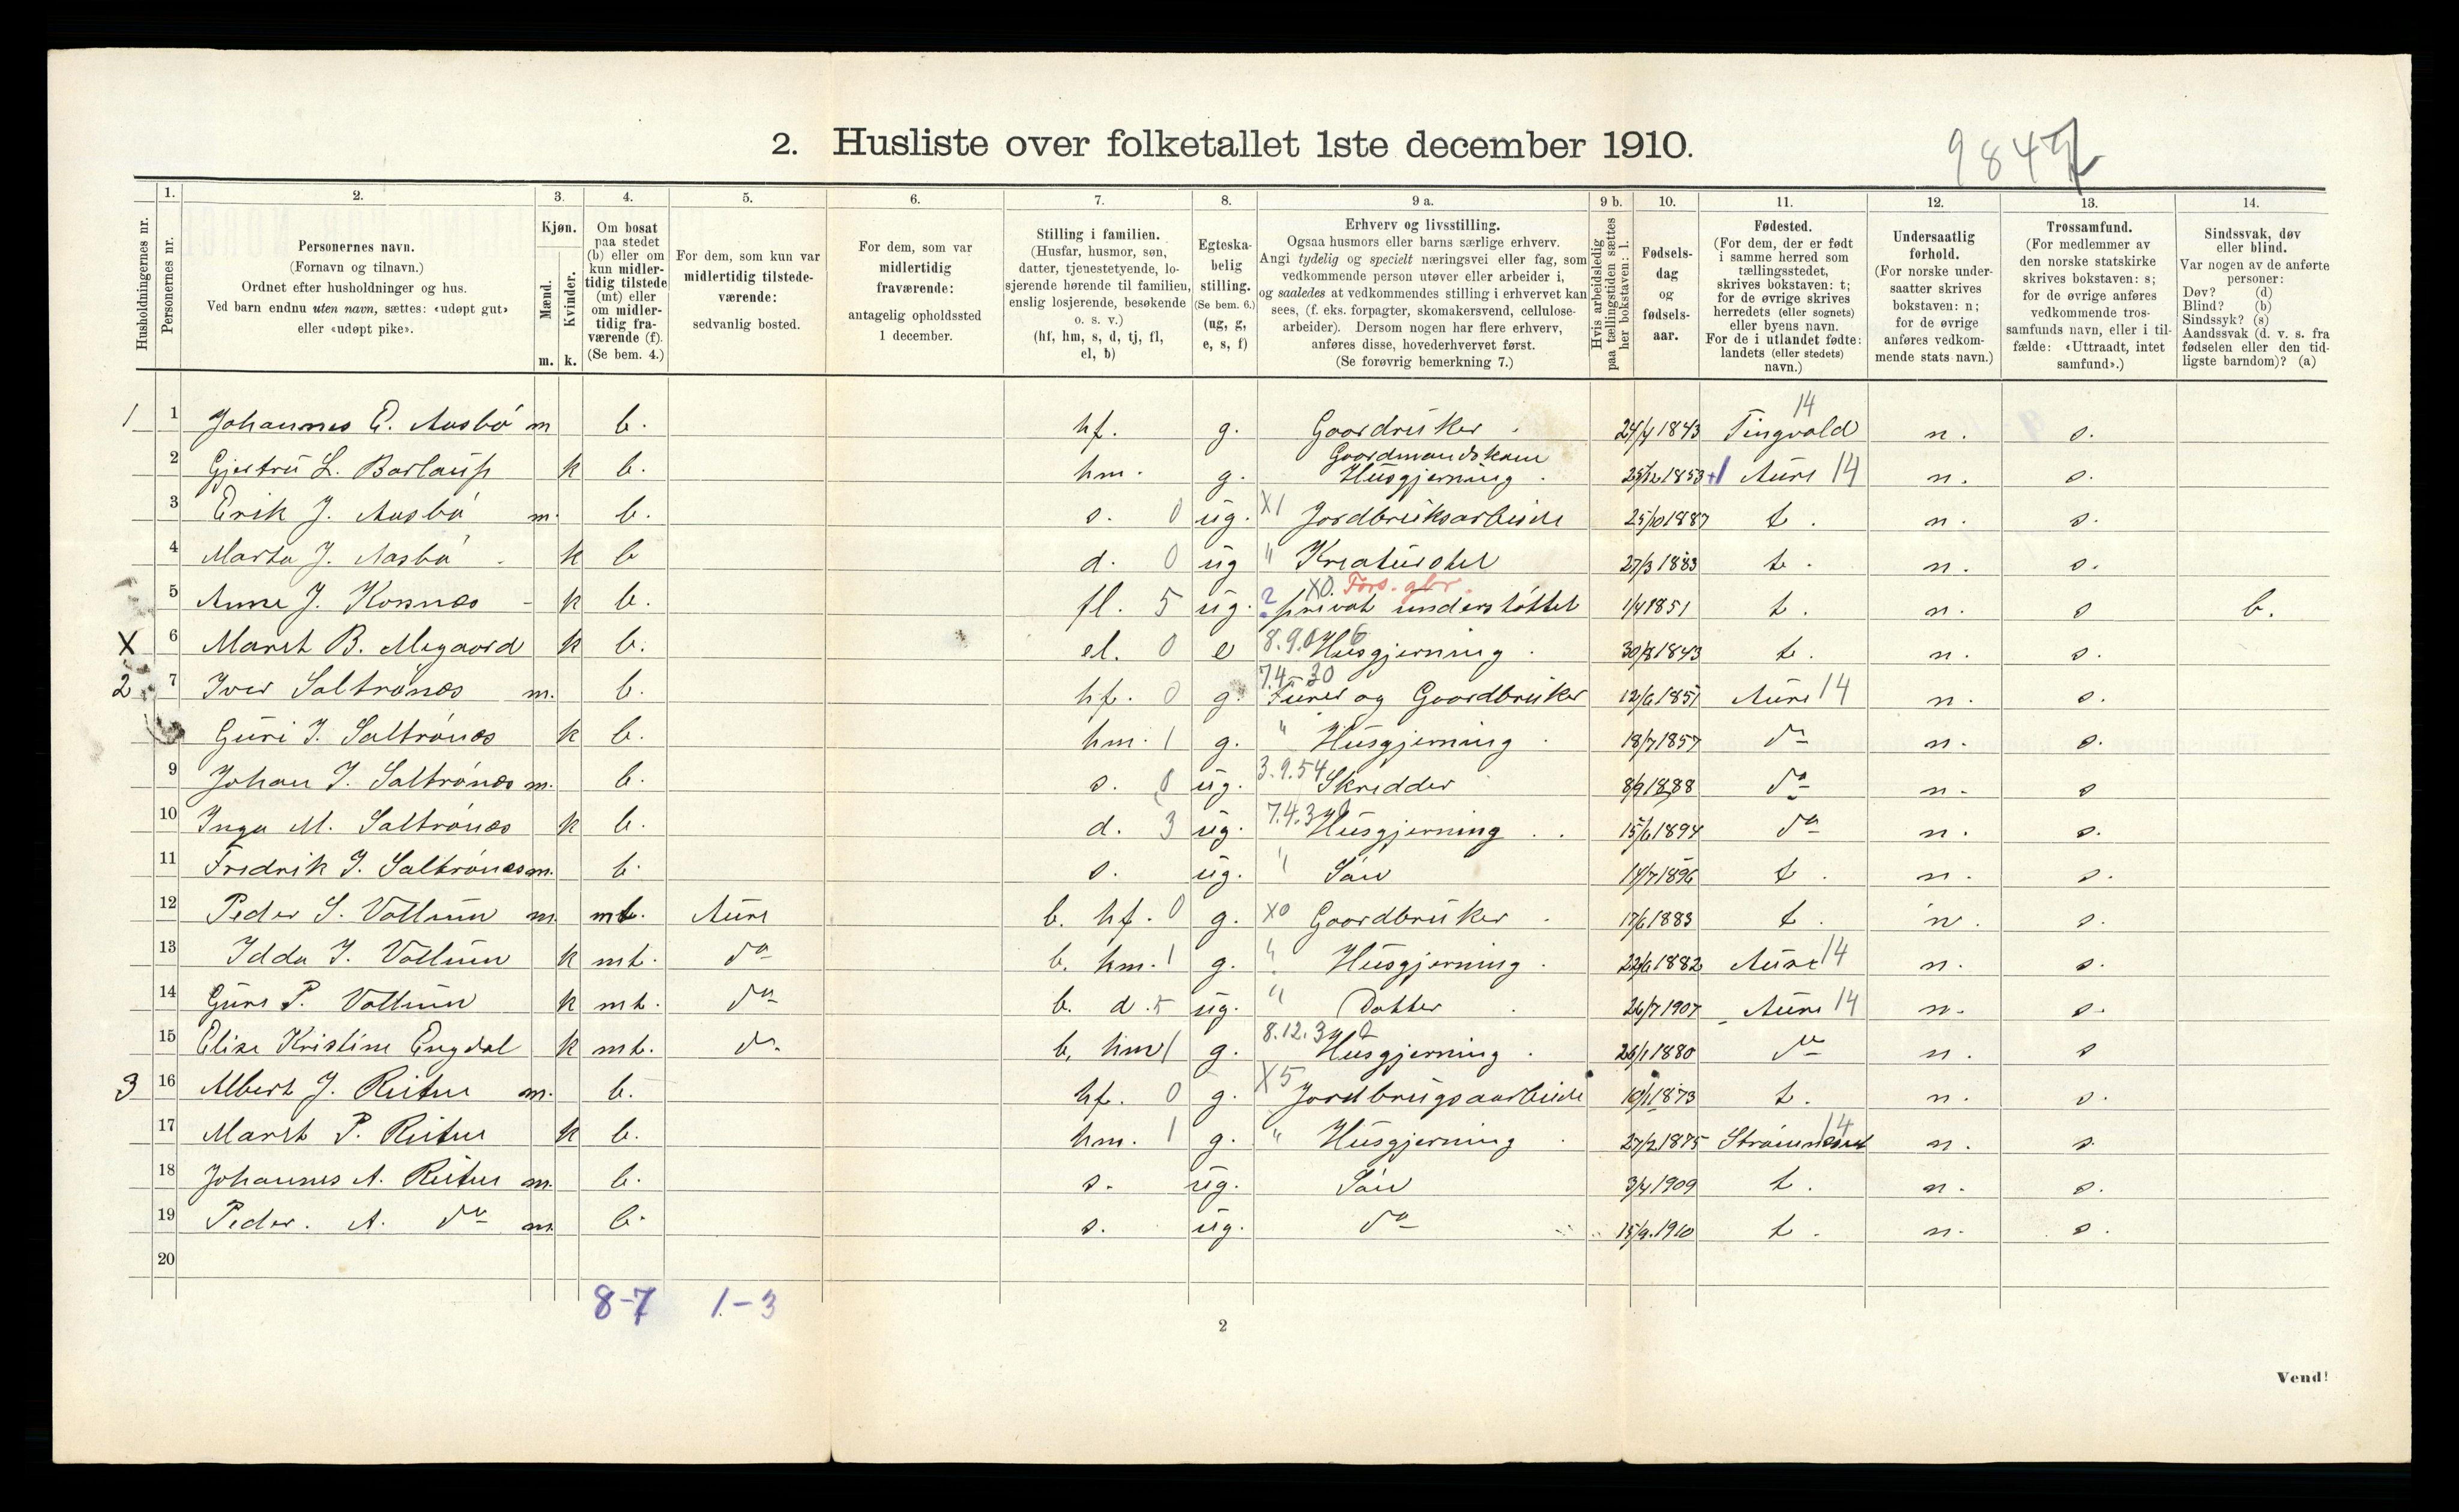 2. Husliste over folketallet 1ste december 1910.
984
Husholdningernes nr.
1. Personernes nr.
2. Personernes navn. (Fornavn og tilnavn.) Ordnet efter husholdninger og hus. Ved barn endnu uten navn, sættes: «udøpt gut» eller «udøpt pike».
3. Kjøn. Mænd. m. Kvinder. k.
4. Om bosat paa stedet (b) eller om kun midlertidig tilstede (mt) eller om midlertidig fraværende (f). (Se bem. 4.)
5. For dem, som kun var midlertidig tilstedeværende: sedvanlig bosted.
6. For dem, som var midlertidig fraværende: antagelig opholdssted 1 december.
7. Stilling i familien. (Husfar, husmor, søn, datter, tjenestetyende, losjerende hørende til familien, enslig losjerende, besøkende o. s. v.) (hf, hm, s, d, tj, fl, el, b)
8. Egteskabelig stilling. (Se bem. 6.) (ug, g, e, s, f)
9 a. Erhverv og livsstilling. Ogsaa husmors eller barns særlige erhverv. Angi tydelig og specielt næringsvei eller fag, som vedkommende person utøver eller arbeider i, og saaledes at vedkommendes stilling i erhvervet kan sees, (f. eks. forpagter, skomakersvend, cellulosearbeider). Dersom nogen har flere erhverv, anføres disse, hovederhvervet først. (Se forøvrig bemerkning 7.)
9 b. Hvis arbeidsledig paa tællingstiden sættes her bokstaven: l.
10. Fødselsdag og fødselsaar.
11. Fødested. (For dem, der er født i samme herred som tællingsstedet, skrives bokstaven: t; for de øvrige skrives herredets (eller sognets) eller byens navn. For de i utlandet fødte: landets (eller stedets) navn.)
12. Undersaatlig forhold. (For norske undersaatter skrives bokstaven: n; for de øvrige anføres vedkommende stats navn.)
13. Trossamfund. (For medlemmer av den norske statskirke skrives bokstaven: s; for de øvrige anføres vedkommende trossamfunds navn, eller i tilfælde: «Uttraadt, intet samfund».)
14. Sindssvak, døv eller blind. Var nogen av de anførte personer: Døv? (d) Blind? (b) Sindssyk? (s) Aandssvak (d. v. s. fra fødselen eller den tidligste barndom)? (a)
1 1 Johannes E. Aasbö m b. hf. g. Gaardbruker 24/4 1843 Tingvold 14 n. s.
2 Gjertru L. Barlaup k b. hm. g. Gaardmandskone Husgjerning 25/12 1853 +1 Aure 14 n. s.
3 Erik J. Aasbö m. b. s. 0 ug. X1 Jordbruksarbeide 25/10 1887 t. n. s.
4 Marta J. Aasbö k b d. 0 ug " Kreaturstel 27/3 1883 t. n. s.
5 Anne J. Korsnæs k b. fl. 5 ug. ? X0. Fors. gbr. privat understöttet 1/4 1851 t. n. s b.
X 6 Marit B. Megaard k b. el. 0 e 8.9.06 Husgjerning 30/8 1843 t. n. s.
2 7 Iver Saltrönes m. b. hf. 0 g. 7.4-30 Furer og Gaardbruker 12/6 1851 Aure 14 n. s.
Guri I. Saltrönes k b. hm. 1 g. " Husgjerning 18/7 1857 do n. s.
9 Johan I. Saltrönes m. b. s. 0 ug. 3.9.54 Skredder 8/9 1888 do n. s
10 Inga M. Saltrönes k b. d. 3 ug. 7.4.3 Husgjerning 15/6 1894 do n. s.
11 Fredrik I. Saltrönes m. b. s. ug. " Sön 14/7 1896 t. n. s.
12 Peder S. Vollum m mt. Aure b. hf. 0 g. X0 Gaardbruker 17/6 1883 t. n. s.
13 Idda I. Vollum k mt. do b. hm. 1 g. " Husgjerning 22/6 1882 Aure 14 n. s.
14 Gure P. Vollum k mt. do b. d. 5 ug. " Datter 26/7 1907 Aure 14 n. s.
15 Elise Kristine Engdal k mt. do. b. hm 1 g. 8.12.3 Husgjerning 26/1 1880 do n. s
3 16 Albert J. Reitus m. b. hf. 0 g. X5 Jordbrugsaarbeide 10/1 1873 t. n. s.
17 Marit P. Reitus k b. hm. 1 g. " Husgjerning 27/2 1875 Strømsneset 14 n. s.
18 Johannes A. Reitus m. b. s. ug. Sön 3/4 1909 t. n. s.
19 Peder. A. do m b. s. ug. do 15/9. 1910 t. n. s.
20
8-7 1.-3
2
Vend!